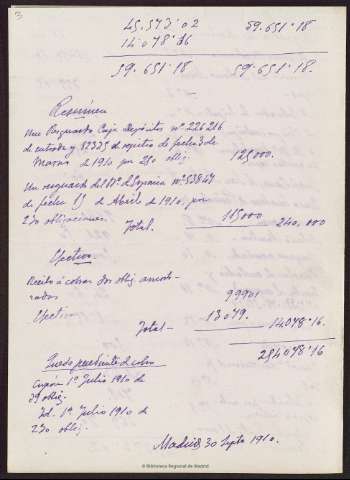 3
45.573'02 59.651'18
14.078'16
59.651'18 59.651'18.
Resúmen
Un Resguardo Caja Depósitos nº 226266
de entrada y 57375 de registro de fecha 3 de
Marzo de 1910 por 250 oblig. 125000.
Un resguardo del Bº d España nº 53847
de fecha 15 de Abril de 1910, por
230 obligaciones. 115000
Total. 240,000
Efectivo
Recibo á cobrar dos oblig amorti-
zadas 999'01
Efectivo 13079.
Total — 14078'16.
254078'16
Queda pendiente de cobro
Cupón 1º Julio 1910 de
Id. 1º Julio 1910 de
230 oblig.
Madrid 30 Septe 1910.
© Biblioteca Regional de Madrid